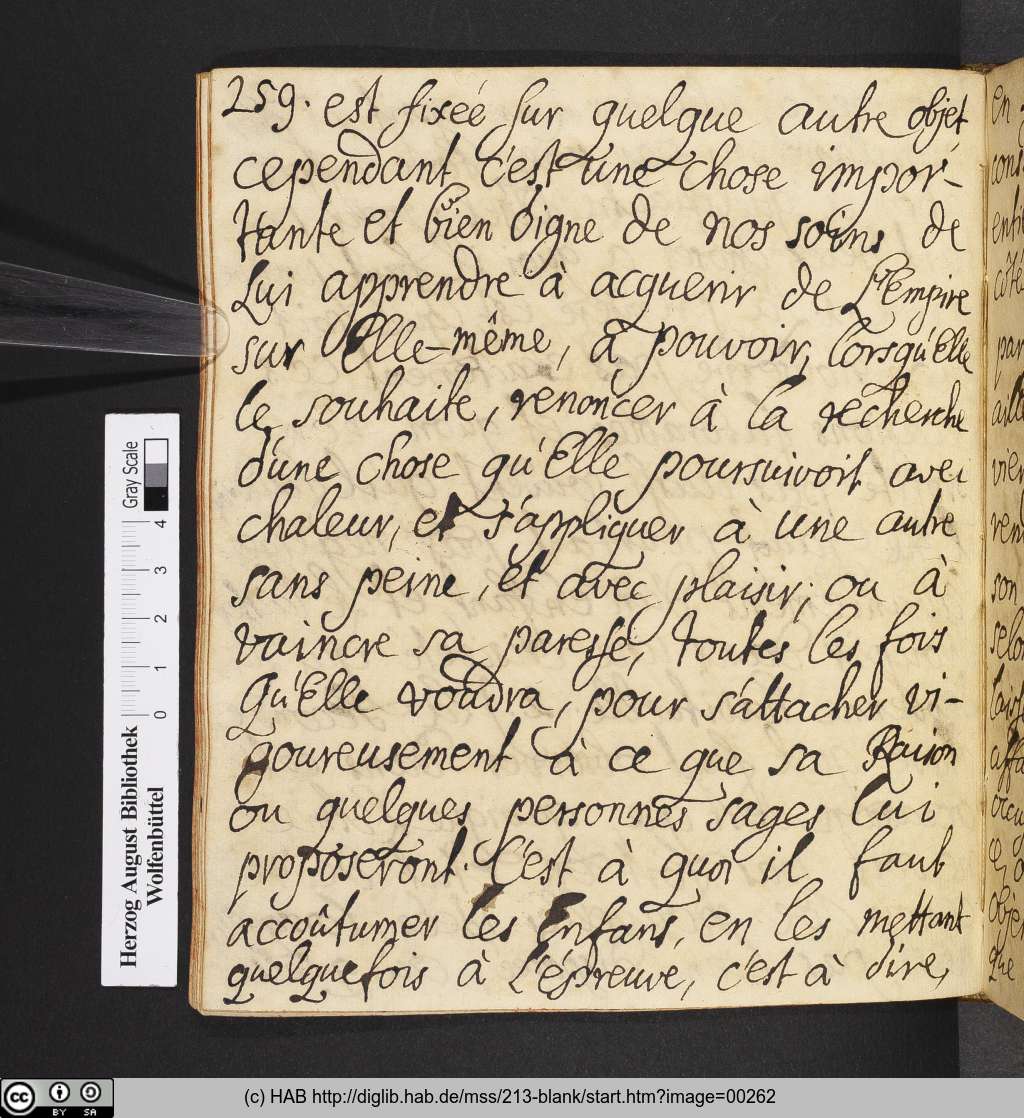 259. est fixée sur quelque autre objet
cependant c'est une chose impor-
tante et bien digne de nos soins de
Lui apprendre à acquerir de L'Empire
sur Elle-même, à pouvoir, lorsqu'Elle
le souhaite, renoncer à la recherche
d'une chose qu'Elle poursuivoit avec
chaleur, et s'appliquer à une autre
sans peine, et avec plaisir; ou à
vaincre sa paresse, toutes les fois
Qu'Elle voudra, pour s'attacher vi-
goureusement à ce que sa Raison
ou quelques personnes sages lui
proposeront. C'est à quoi il faut
accoûtumer les Enfans, en les mettant
quelquefois à L'épreuve, c'est à dire,
en
par
son
que
Gray Scale
4
3
2
1
0
Herzog August Bibliothek
Wolfenbüttel
cc BY SA
(c) HAB http://diglib.hab.de/mss/213-blank/start.htm?image=00262